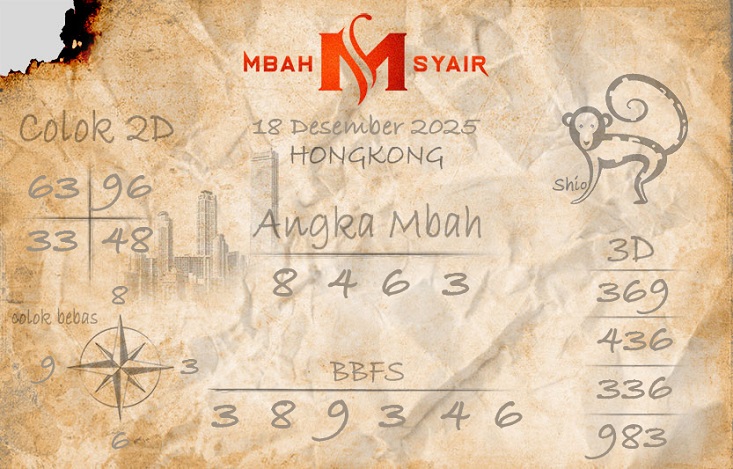 MBAH M SYAIR
Colok 2D
18 Desember 2025
HONGKONG
63 96
33 48
Angka Mbah
8 4 6 3
Shio
3D
369
436
336
983
8
colok bebas
9 3
6
BBFS
3 8 9 3 4 6